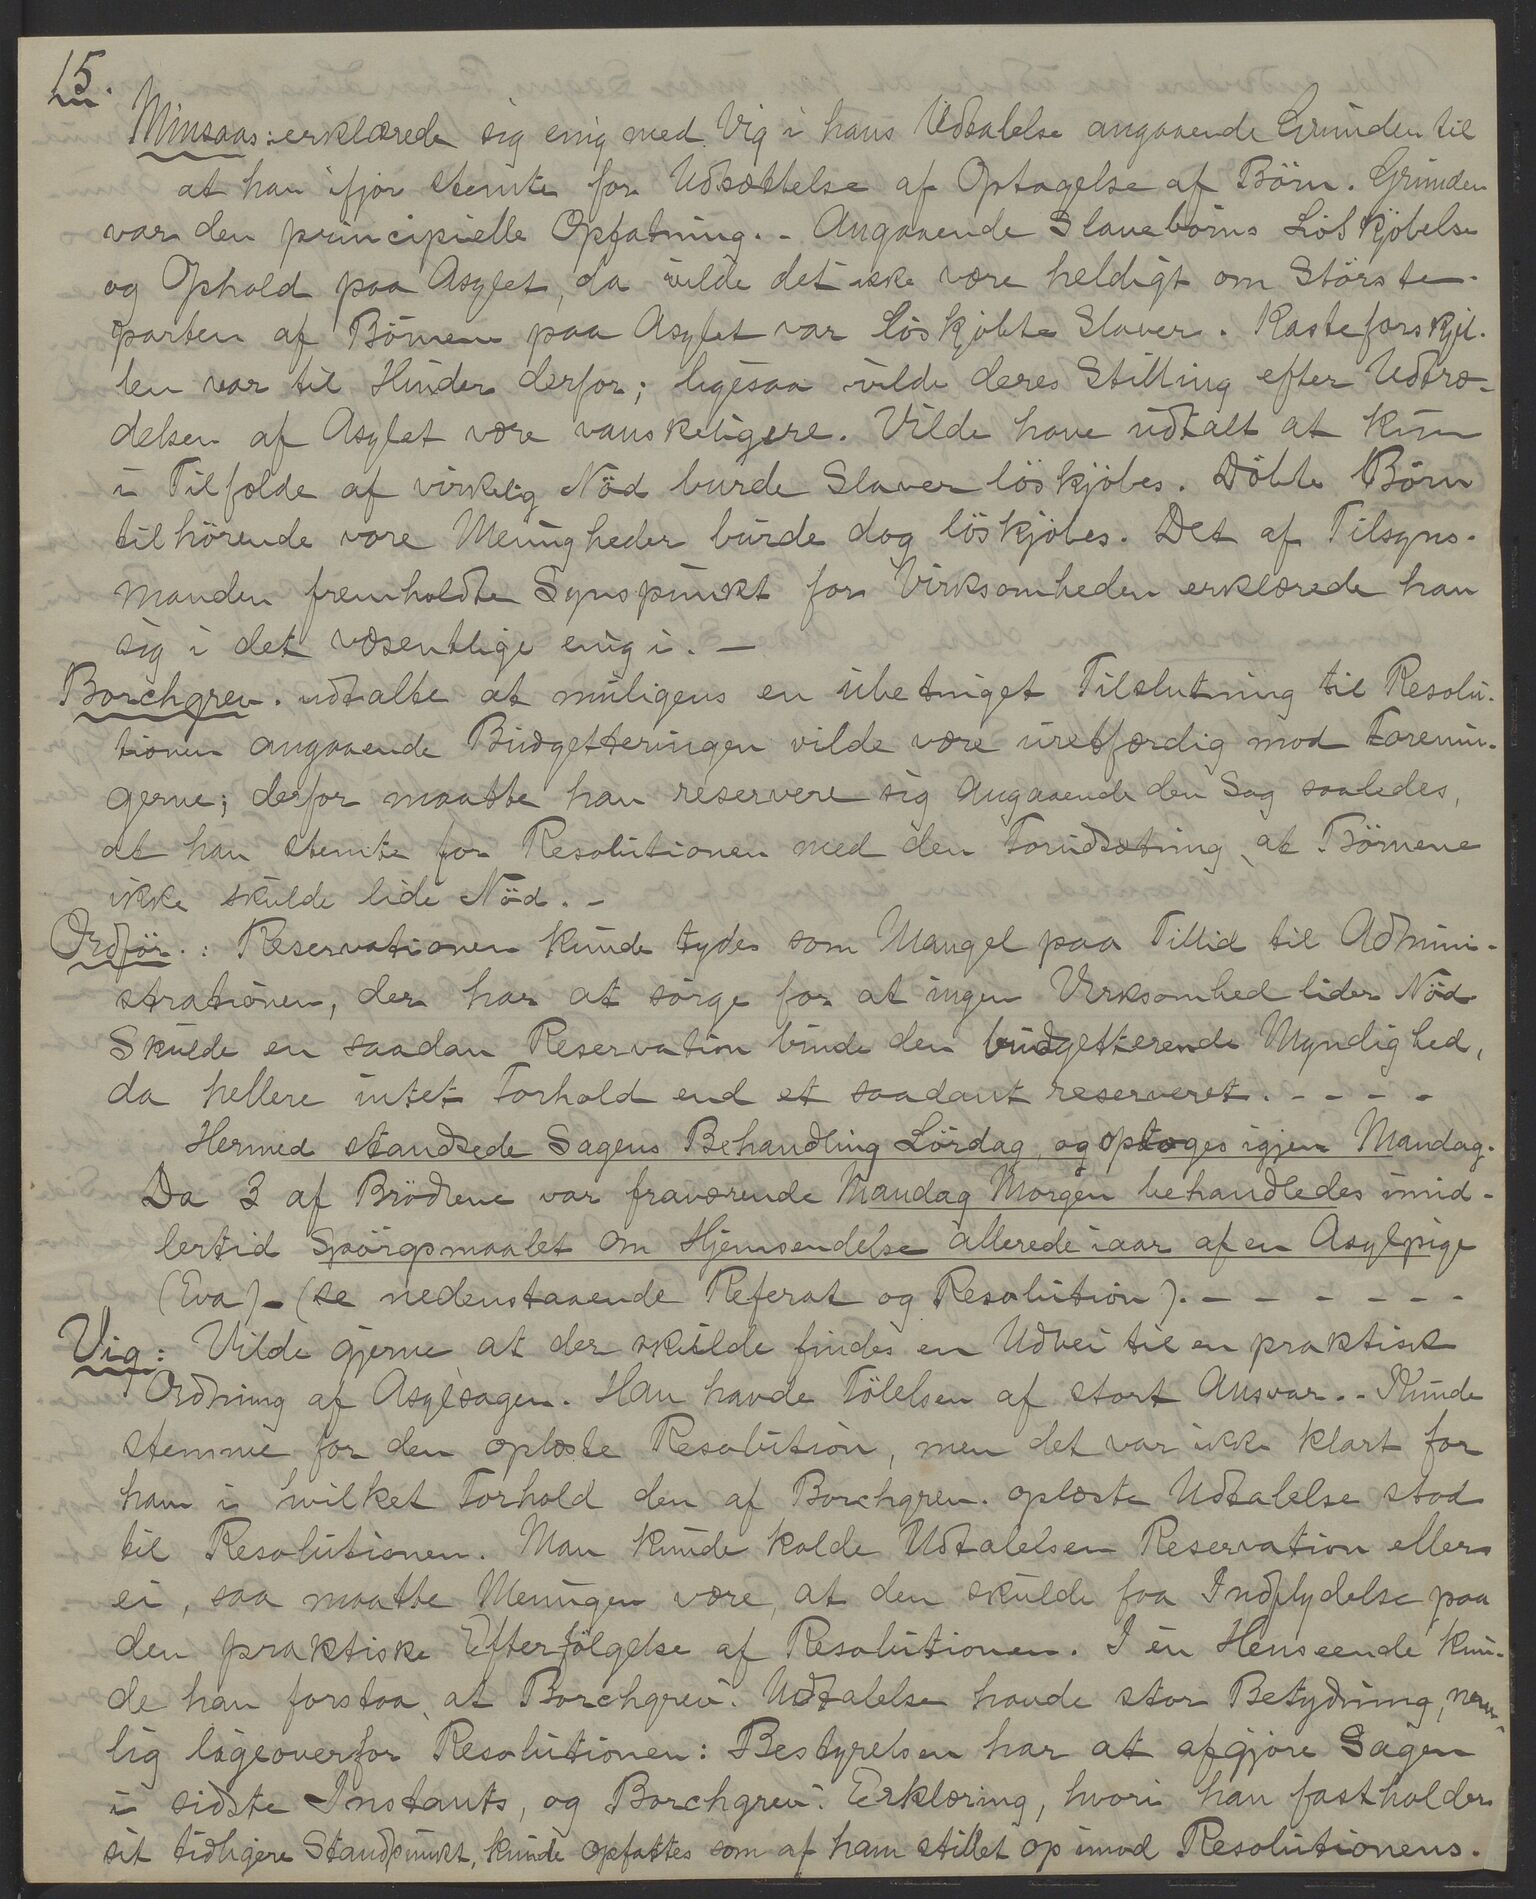 15.
Minsaas: erklærede sig enig med Vig i hans Udtalelse angaaende Grunden til
at han ifjor stemte for Udsættelse af Optagelse af Börn. Grunden
var den principielle Opfatning. - Angaaende Slavebörns Löskjöbelse
og Ophold paa Asylet, da vilde det ikke være heldigt om Störste-
parten af Börnene paa Asylet var löskjöbte Slaver. Kasteforskjel-
len var til Hinder derfor; ligesaa vilde deres Stilling efter Udtræ-
delsen af Asylet være vanskeligere. Vilde have udtalt at kun
i Tilfælde af virkelig Nöd burde Slaver löskjöbes. Döbte Börn
tilhörende vore Menigheder burde dog löskjöbes. Det af Tilsyns-
manden fremholdte Synspunkt for Virksomheden erklærede han
sig i det væsentlige enig i. -
Borchgrev. udtalte at muligens en ubetinget Tilslutning til Resolu-
tionen angaaende Budgetteringen vilde være uretfærdig mod Forenin-
gerne; derfor maatte han reservere sig angaaende den Sag saaledes,
at han stemte for Resolutionen med den Forudsætning, at Börnene
ikke skulde lide Nöd. -
Ordför.: Reservationen kunde tydes som Mangel paa Tillid til Admini-
strationen, der har at sörge for at ingen Virksomhed lider Nöd.
Skulde en saadan Reservation binde den budgetterende Myndighed,
da hellere intet Forhold end et saadant reserveret. - - - -
Hermed standsede Sagens Behandling Lördag, og optoges igjen Mandag.
Da 3 af Brödrene var fraværende Mandag Morgen behandledes imid-
lertid Spörgsmaalet om Hjemsendelse allerede iaar af en Asylpige
(Eva) - (se nedenstaaende Referat og Resolution). - - - - - -
Vig: Vilde gjerne at der skulde findes en Udvei til en praktisk
Ordning af Asylsagen. Han havde Fölelsen af stort Ansvar. - Kunde
stemme for den oplæste Resolution, men det var ikke klart for
ham i hvilket Forhold den af Borchgrev. oplæste Udtalelse stod
til Resolutionen. Man kunde kalde Udtalelsen Reservation eller
ei, saa maatte Meningen være, at den skulde faa Indflydelse paa
den praktiske Efterfölgelse af Resolutionen. I én Henseende kun-
de han forstaa, at Borchgrev. Udtalelse havde stor Betydning, nem-
lig ligeoverfor Resolutionen: Bestyrelsen har at afgjöre Sagen
i sidste Instants, og Borchgrev. Erklæring, hvori han fastholder
sit tidligere Standpunkt, kunde opfattes som af ham stillet op imod Resolutionens.